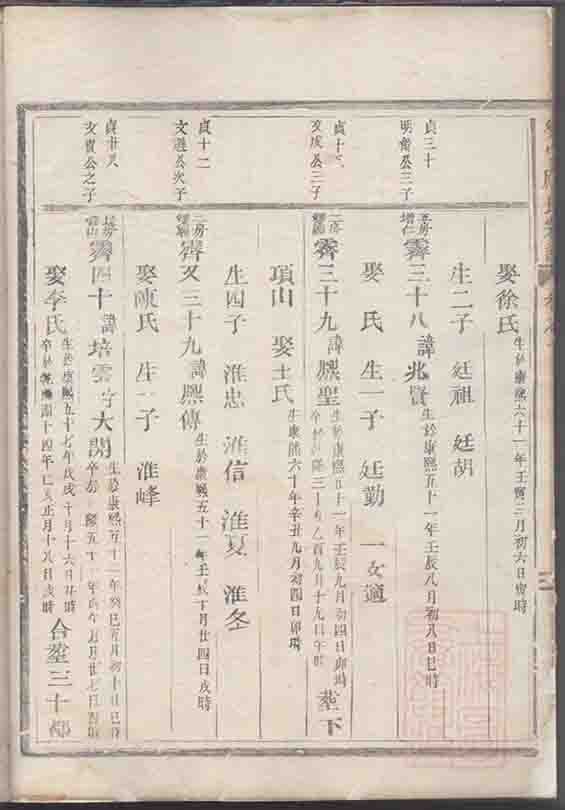 娶徐氏 生於康熙六十一年壬寅三月初六日寅時
生二子 廷祖 廷胡
貞三十
明 公三子
霽三十八 諱兆賢 生於康熙五十一年壬辰八月初八日巳時
娶 氏 生一子 廷勤 一女適
貞十
文成公三子
霽三十九 諱熙聖 生於康熙五十一年壬辰九月初四日卯時
卒於 三十年乙酉九月十九日午時 葬下
項山 娶王氏 生康熙六十年辛丑九月初四日卯時
生四子 淮忠 淮信 淮夏 淮冬
貞十二
文進公次子
霽又三十九 諱熙傳 生於康熙五十一年壬辰十月廿四日戌時
娶陳氏 生一子 淮峰
貞廿
文 公之子
霽四十 諱培雲 字大閎 生於康熙五十二年癸巳五月初十日巳時
卒於 五十一年 午五月廿七日酉時
娶李氏 生於康熙五十七年戊戌十月十六日 時
卒於乾隆四十四年己亥正月十八日戌時 合塟三十都